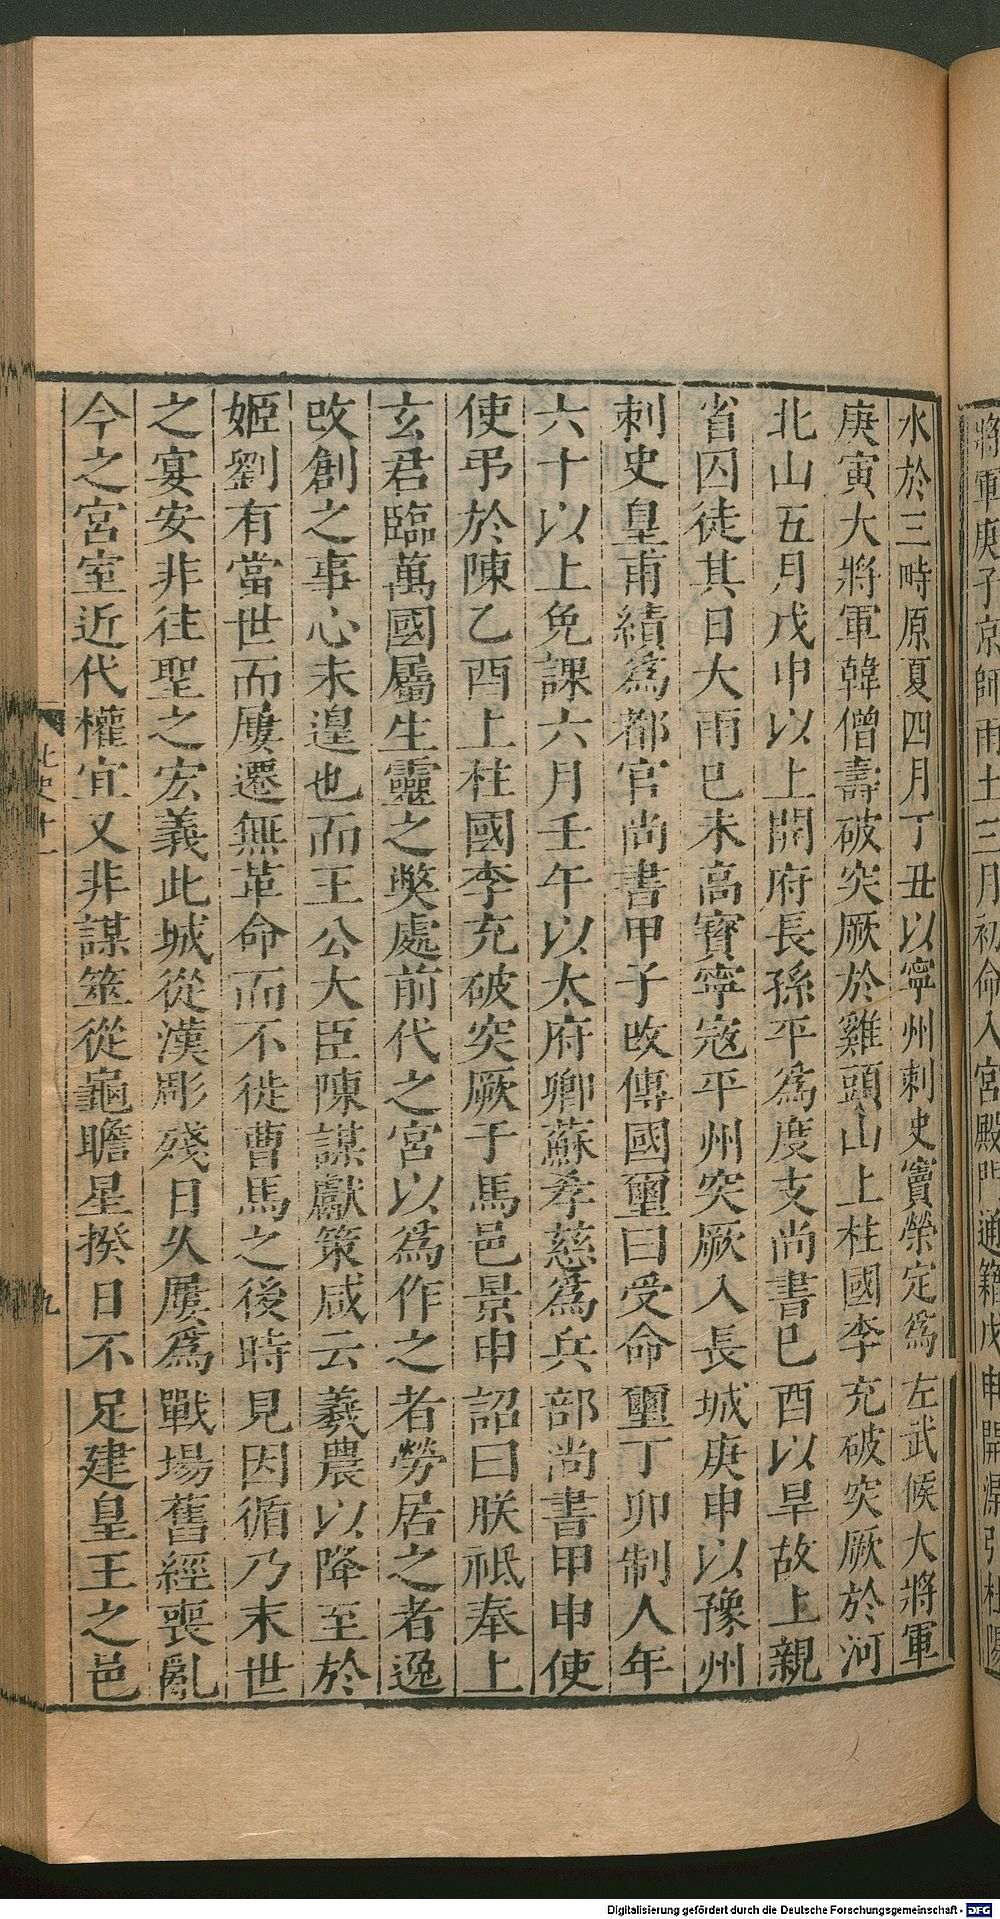 將軍庚子京師雨土三月初命入宮殿門通籍戊申開渠引杜陽
水於三畤原夏四月丁丑以寧州刺史竇榮定爲左武候大將軍
庚寅大將軍韓僧壽破突厥於雞頭山上柱國李充破突厥於河
北山五月戊申以上開府長孫平爲度支尚書巳酉以旱故上親
省囚徒其日大雨巳未高寳寧寇平州突厥入長城庚申以豫州
刺史皇甫績爲都官尚書甲子改傳國璽曰受命璽丁卯制人年
六十以上免課六月壬午以太府卿蘇孝慈爲兵部尚書甲申使
使弔於陳乙酉上柱國李充破突厥于馬邑景申詔曰朕祗奉上
玄君臨萬國屬生靈之獘處前代之宮以爲作之者勞居之者逸
改創之事心未遑也而王公大臣陳謀獻策咸云羲農以降至於
姬劉有當世而屢遷無革命而不徙曹馬之後時見因循乃末世
之宴安非往聖之宏義此城從漢彫殘日久屢爲戰場舊經喪亂
今之宮室近代權宜又非謀筮從龜瞻星揆日不足建皇王之邑
北史十一
九
Digitalisierung gefördert durch die Deutsche Forschungsgemeinschaft - DFG